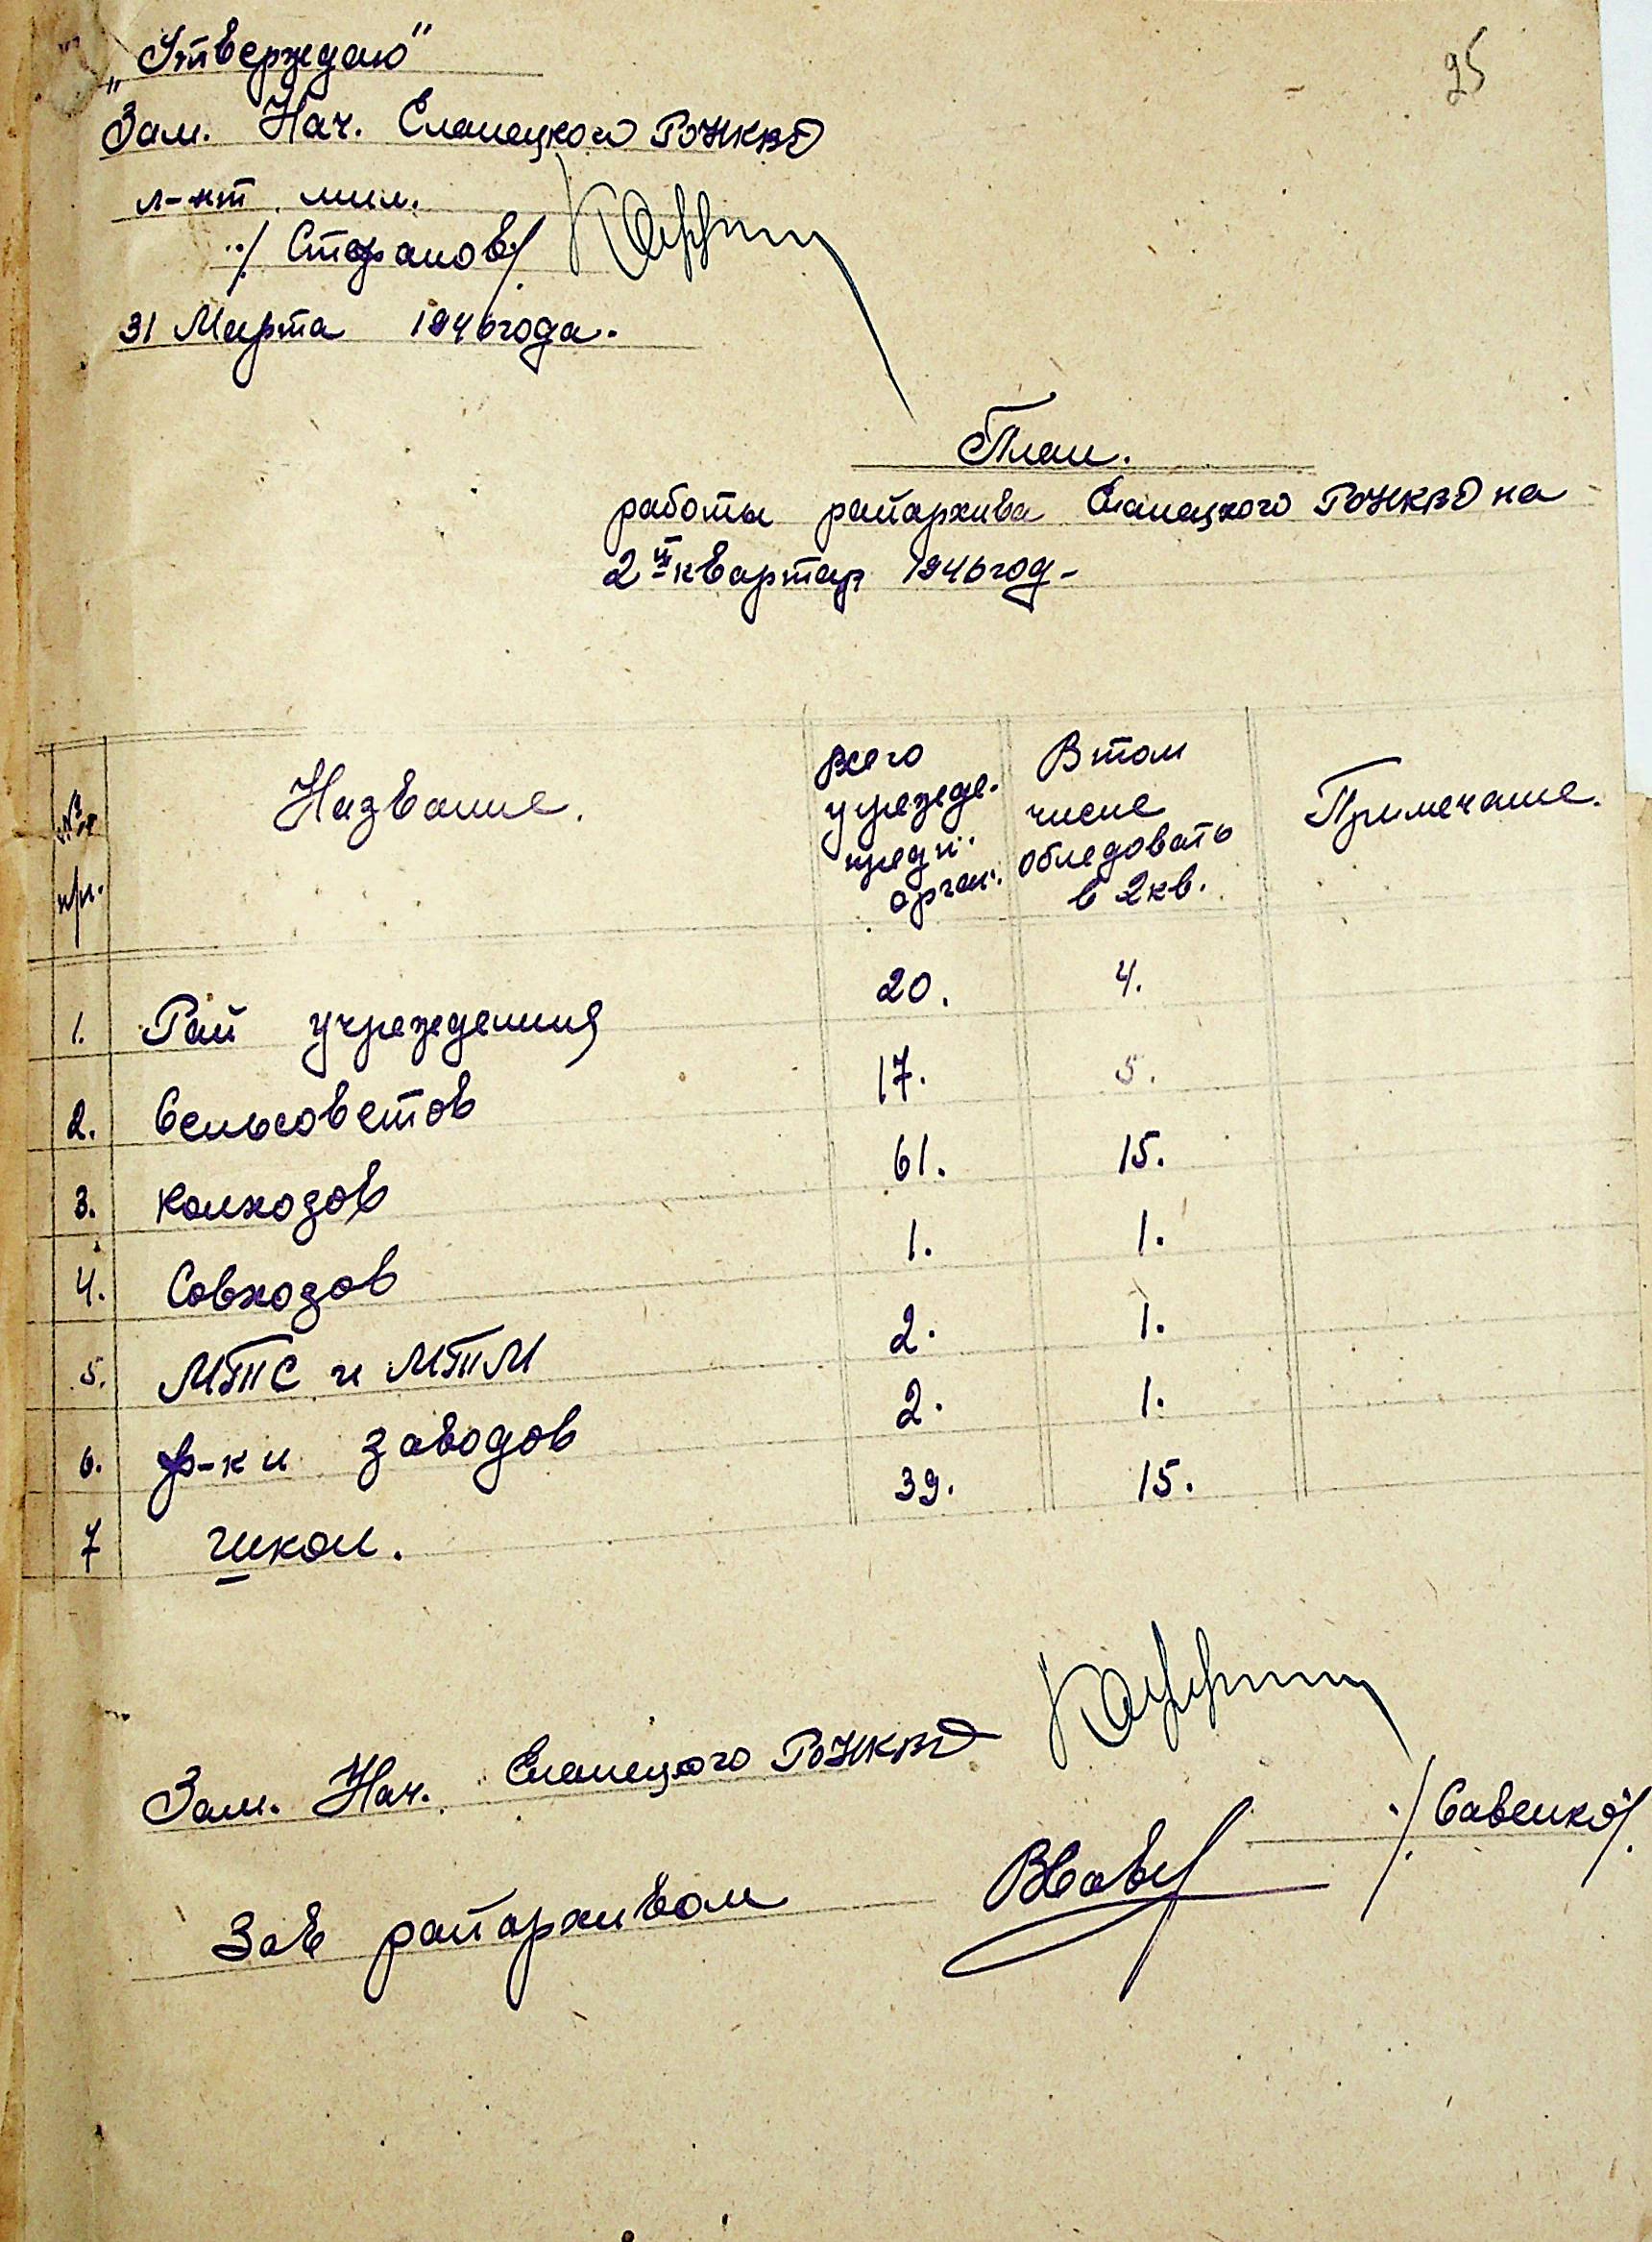 25
„Утверждаю"
Зам. Нач. Еланецкого РОНКВД
л-нт. мил.
/Стефанов/
31 Марта 1946 года.
План.
работы райархива Еланецкого РОНКВД на
2й квартар 1946 год-
№№ п/п. | Название. | Всего учрежде. предп. орган. | В том числе обледовать в 2 кв. | Примечание.
1. Рай учреждения 20. 4.
2. Сельсоветов 17. 5.
3. Колхозов 61. 15.
4. Совхозов 1. 1.
5. МТС и МТМ 2. 1.
6. ф-к и заводов 2. 1.
7 школ. 39. 15.
Зам. Нач. Еланецкого РОНКВД
Зав райархивом /Савенко/.